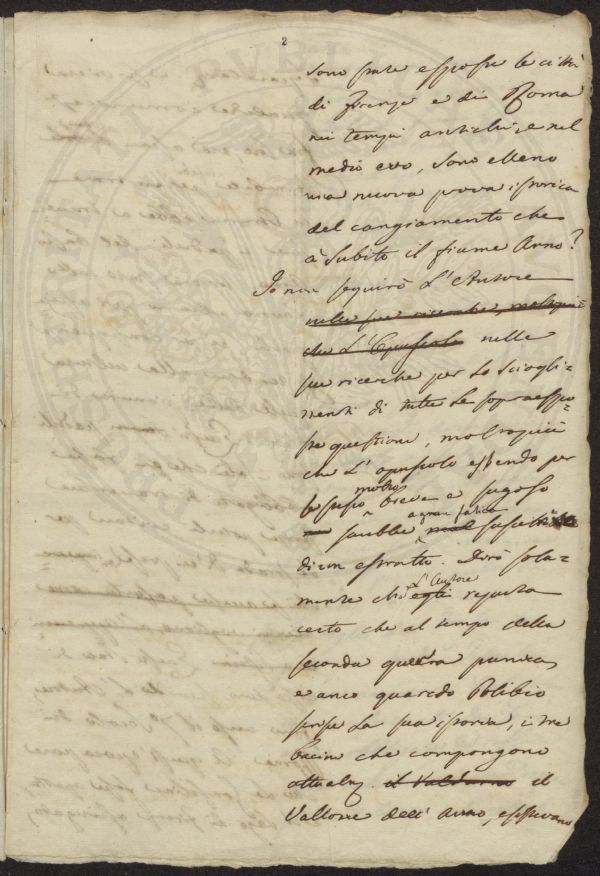 2
sono state esposte le città
di Firenze e di Roma
nei tempi antichi, e nel
medio evo, sono elleno
una nuova prova istorica
del cangiamento che
à subito il fiume Arno?
Io non seguirò L'Autore
nelle sue ricerche, moltopiù
che L'Opuscolo nelle
sue ricerche per lo sciogli=
mento di tutte le sopraespo=
ste questioni, moltopiù
che L'opuscolo essendo per
molto
se stesso breve e sugoso
a gran fatica
sarebbe mal suscettibile
di un estratto. Dirò sola=
L'Autore
mente che egli reputa
certo che al tempo della
seconda guerra punica,
e anco quando Polibio
scrisse La sua istoria, i tre
bacini che compongono
attualm. il Valdarno il
Vallone dell'Arno, esistevano